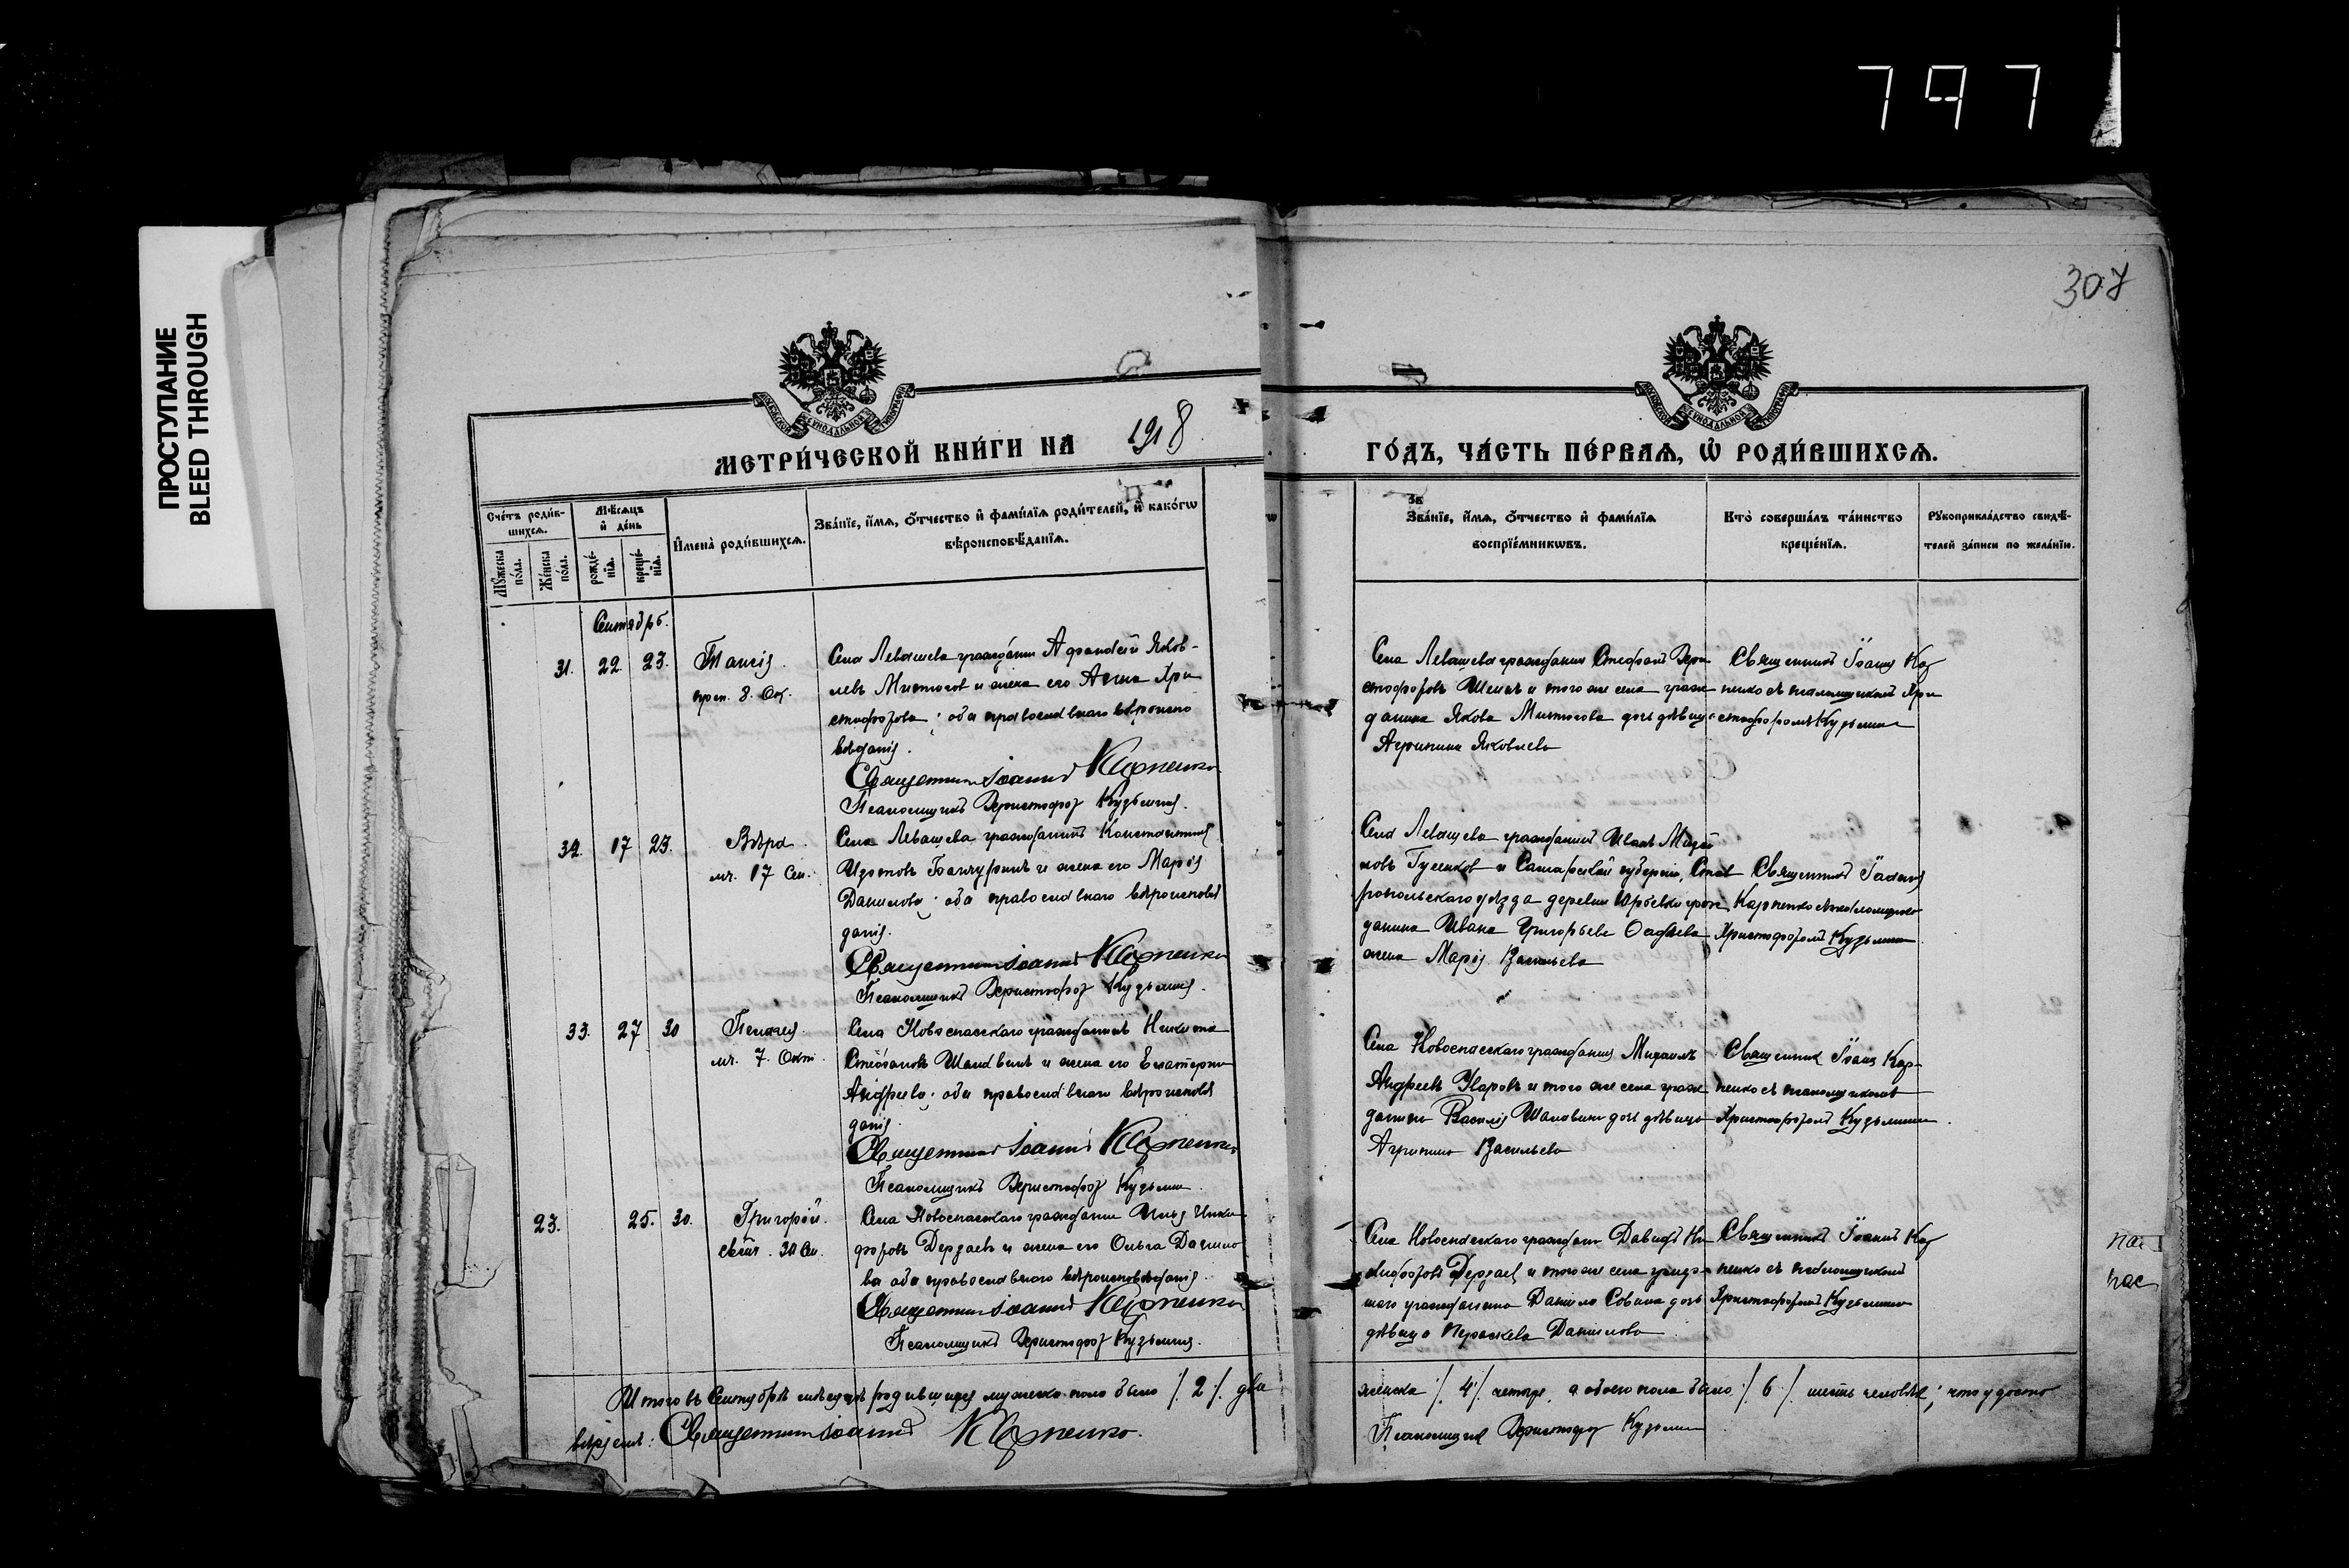 797
307
ПРОСТУПАНИЕ
BLEED THROUGH
МЕТРИ́ЧЕСКОЙ КНИ́ГИ НА 1918
ГО́ДЪ, ЧА́СТЬ ПЕ́РВАѦ, Ѡ҆ РОДИ́ВШИХСѦ.
Сче́тъ роди́в-
шихсѧ.
Мꙋ́жеска по́ла.
Же́нска по́ла.
Мѣ́сѧцъ и҆ де́нь
рожде́-
нїѧ.
креще́-
нїѧ.
И҆мена̀ роди́вшихсѧ.
Зва́нїе, и҆́мѧ, ѻ҆́тчество и҆ фами́лїѧ роди́телей, и҆ како́гѡ
вѣроисповѣ́данїѧ.
Зва́нїе, и҆́мѧ, ѻ҆́тчество и҆ фами́лїѧ
воспрїе́мникѡвъ.
Кто̀ соверша́лъ та́инство
креще́нїѧ.
Рꙋкоприкла́дство свидѣ́-
телей за́писи по жела́нїю.
Сентябрь.
31. 22. 23. Таисія.
Села Левашева гражданин Афанасій Яков-
левъ и жена его Анна Хри
стофорова; оба православнаго вѣроиспо
вѣданія.
Священникъ Іоаннъ Карпенко
Псаломщикъ Христофоръ Кузьминъ.
Села Левашева гражданинъ Стефанъ Хри
стофоровъ и того же села граж
данина Якова дочь дѣвица
Агрипина Яковлева
Священникъ Іоаннъ Кар
пенко съ псаломщикомъ Хри
стофоромъ Кузьминым
32. 17 23. Вѣра.
мч. 17 Сен.
Села Левашева гражданинъ Константинъ
и жена его Марія
Данилова; оба православнаго вѣроисповѣ
данія.
Священникъ Іоаннъ Карпенко
Псаломщикъ Христофоръ Кузьминъ.
Села Левашева гражданинъ Иванъ
и Самарской губерніи, Став
ропольскаго уѣзда деревни граж
данина Ивана Григорьева
жена Марія Васильева
Священникъ Іоаннъ
Карпенко съ псаломщико
Христофоромъ Кузьминым
33. 27 30 Пелагея.
мч. 7. Окт.
Села Новоспасскаго гражданинъ Никита
Стефановъ и жена его Екатерина
Андреева; оба православнаго вѣроисповѣ
данія.
Священникъ Іоаннъ Карпенко
Псаломщикъ Христофоръ Кузьмин.
Села Новоспасскаго гражданинъ Михаилъ
Андреевъ Уваровъ и того же села граж
данина Василія дочь дѣвица
Агрипина Васильева
Священник Іоаннъ Кар-
пенко съ псаломщикомъ
Христофоромъ Кузьминым.
23. 25. 30. Григорій.
30 Сен.
Села Новоспасскаго гражданин Илья Ники
форовъ Дерзаевъ и жена его Ольга Данило
ва оба православнаго вѣроисповѣданія.
Священникъ Іоаннъ Карпенко
Псаломщикъ Христофоръ Кузьминъ.
Села Новоспасскаго граждан Давидъ Ни
кифоровъ Дерзаевъ и того же села
гражданина Данила Совина дочь
дѣвица Параскева Данилова
Священникъ Іоаннъ Кар
пенко съ псаломщикомъ
Христофоромъ Кузьминым
Итого въ Сентябрѣ мѣсяцѣ родившихся мужеска пола было /. 2 /. два
женска /. 4 /. четыре, а обоего пола было /. 6 /. шесть человѣкъ; что удосто
вѣряемъ: Священникъ Іоаннъ Карпенко.
Псаломщик Христофор Кузьмин